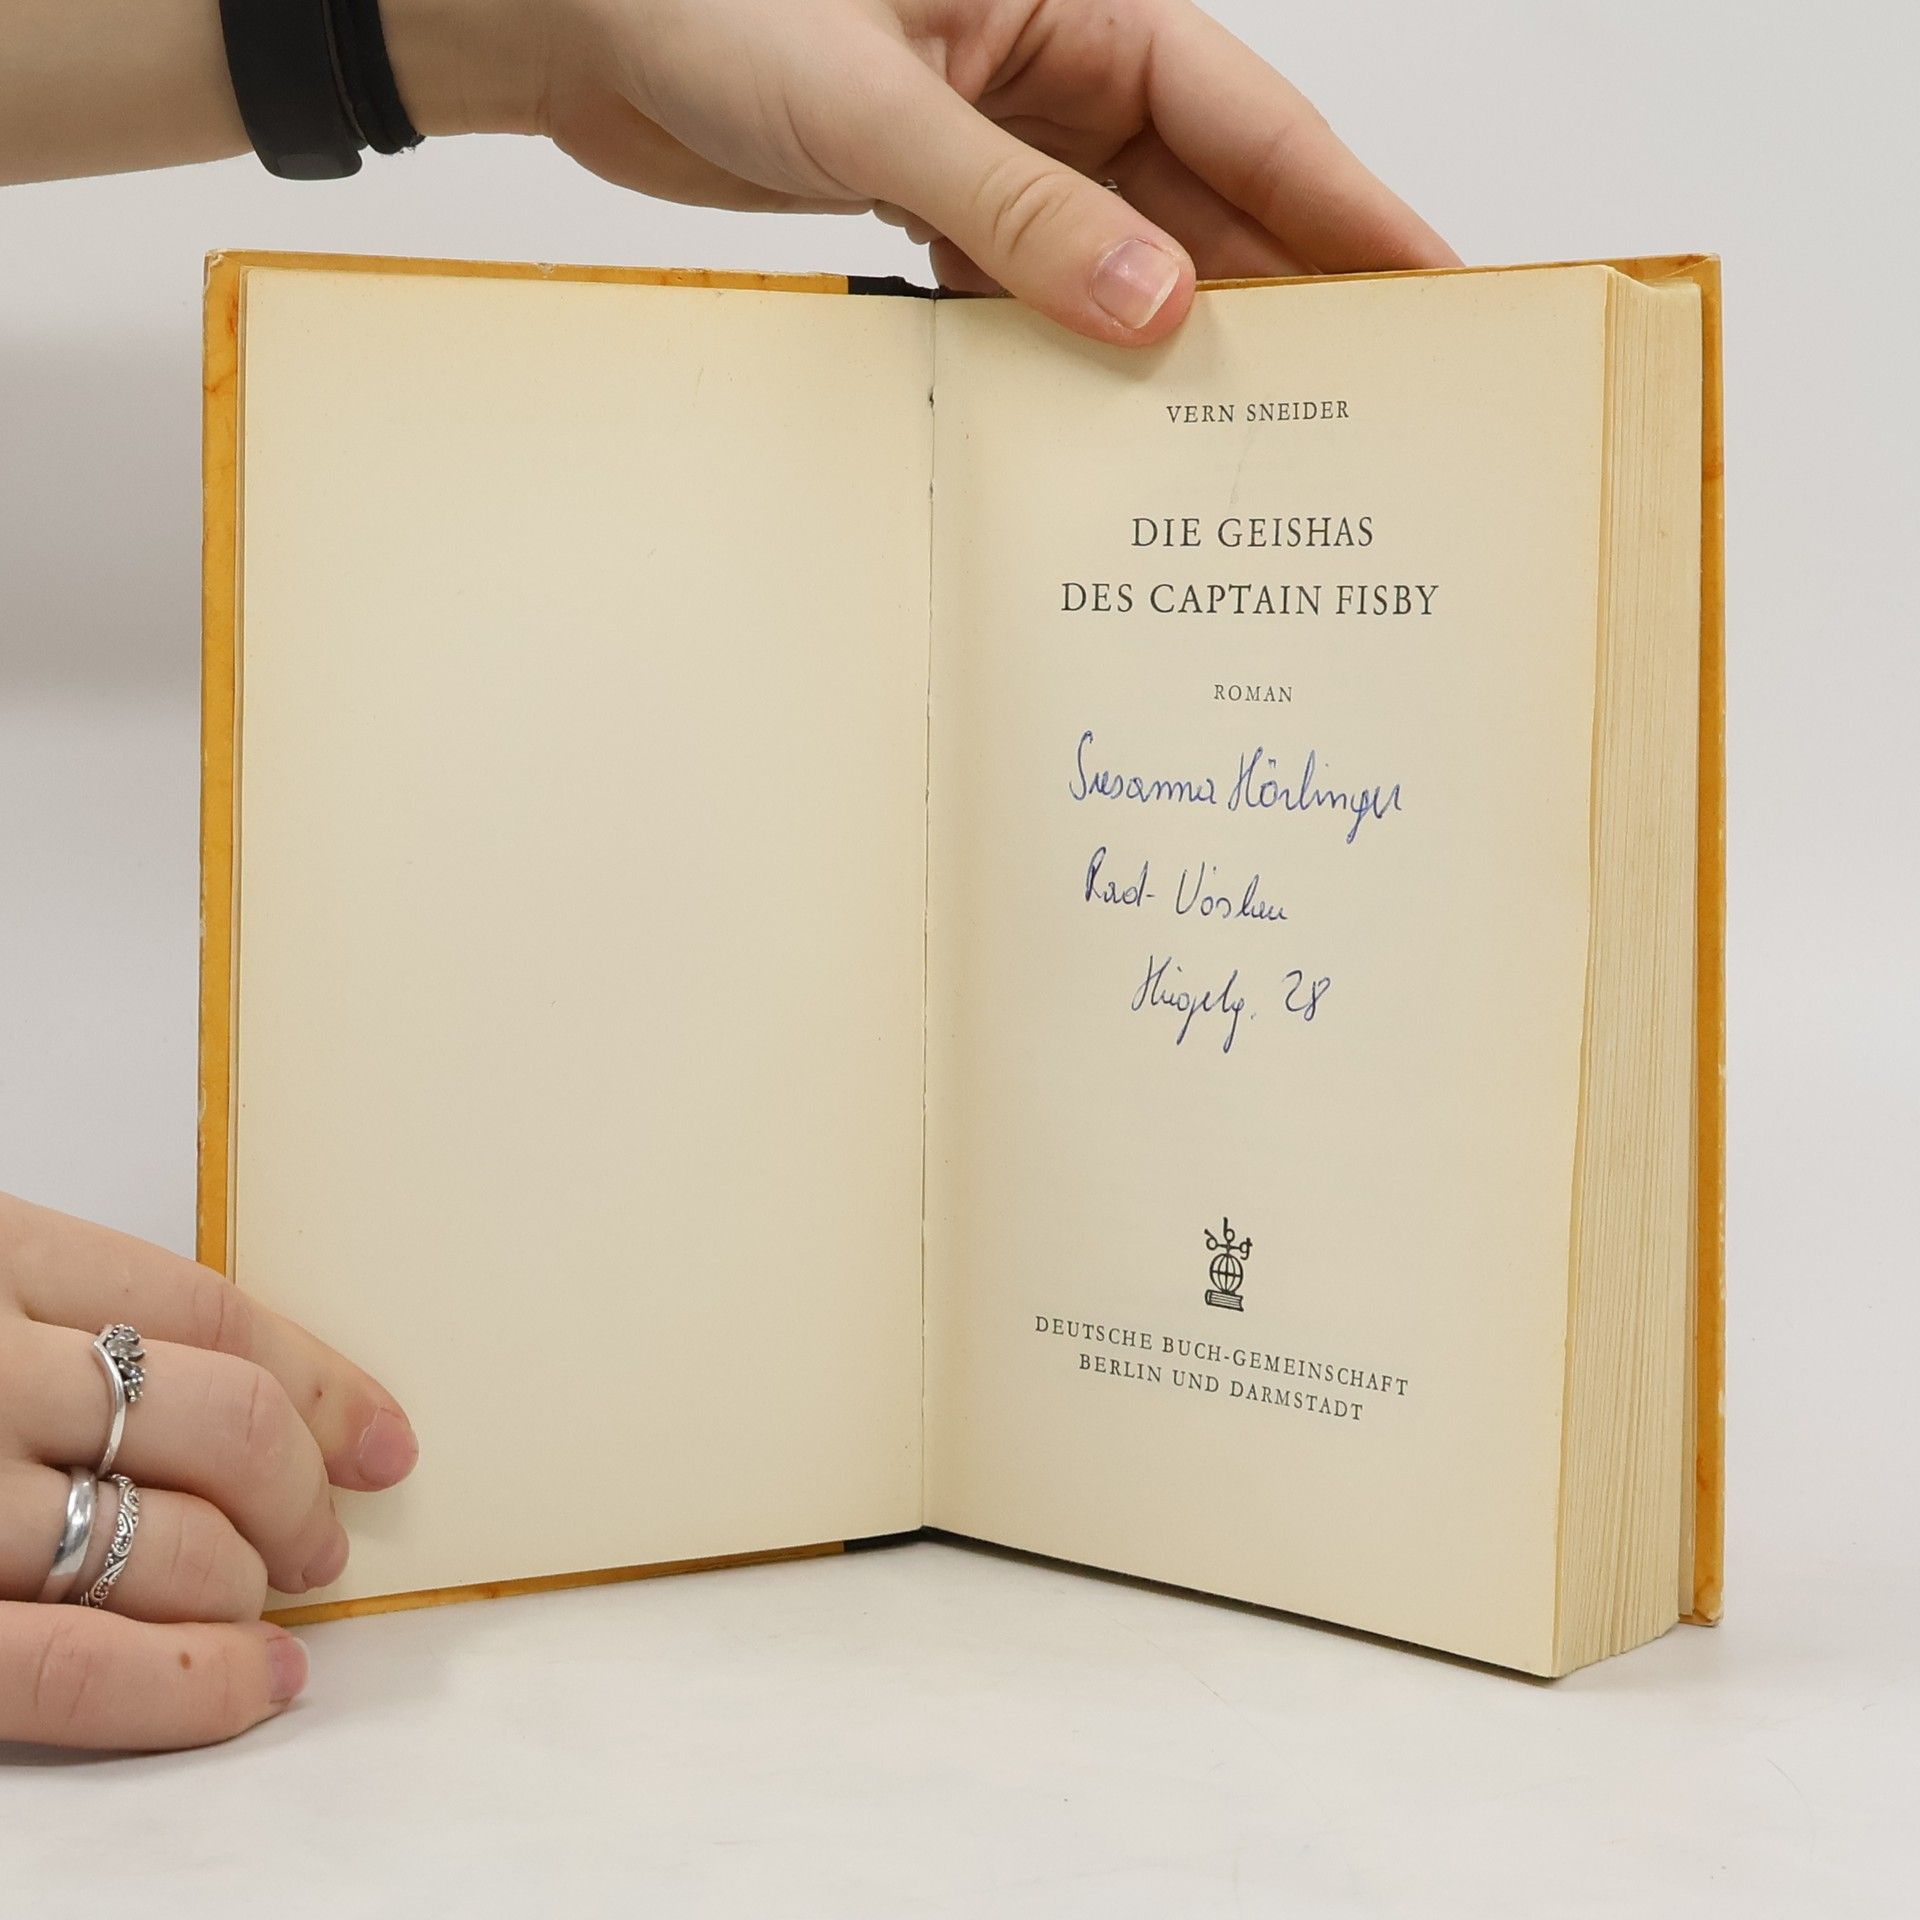 VERN SNEIDER
DIE GEISHAS
DES CAPTAIN FISBY
ROMAN
Susanna Hörlinger
Bad-Vöslau
Hügelg. 28
dbg
DEUTSCHE BUCH-GEMEINSCHAFT
BERLIN UND DARMSTADT